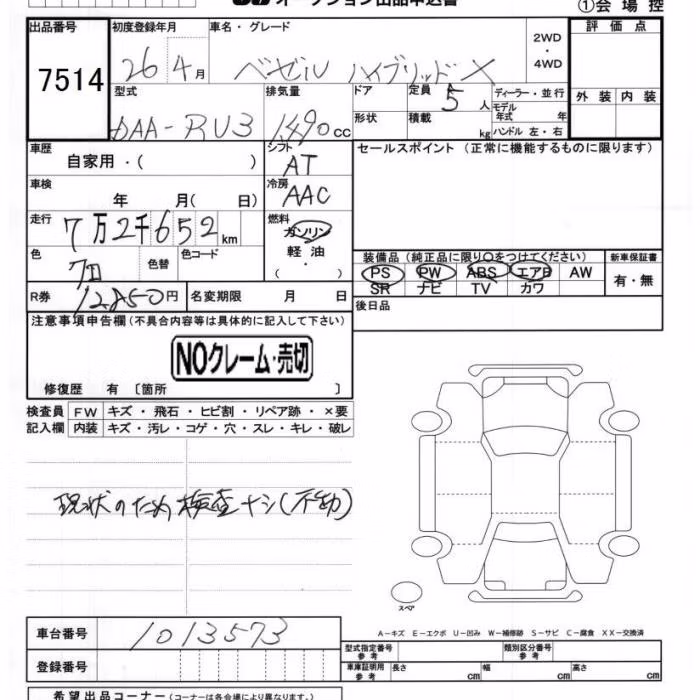 オークション出品申込書
①会場控
出品番号 7514
初度登録年月 26 4月
車名・グレード ベゼル ハイブリッドX
2WD・4WD
評価点
外装 内装
型式 DAA-RU3
排気量 1490cc
ドア
形状
定員 5人
積載 kg
ディーラー・並行
モデル年式 年
ハンドル 左・右
車歴 自家用・( )
シフト AT
セールスポイント (正常に機能するものに限ります)
車検 年 月( 日)
冷房 AAC
走行 7万2千652km
燃料 ガソリン 軽油 ・ ( )
色
色替 色コード
装備品(純正品に限り○をつけてください)
新車保証書
PS PW ABS エアB AW
有・無
SR ナビ TV カワ
R券 12,850円
名変期限 月 日
後日品
注意事項申告欄(不具合内容等は具体的に記入して下さい)
NOクレーム・売切
修復歴 有 〔箇所 〕
検査員記入欄
FW キズ・飛石・ヒビ割・リペア跡・×要
内装 キズ・汚レ・コゲ・穴・スレ・キレ・破レ
現状のため検査ナシ(不動)
スペア
A-キズ E-エクボ U-凹み W-補修跡 S-サビ C-腐食 XX-交換済
車台番号 1013573
型式指定番号参考
類別区分番号参考
登録番号
車庫証明用参考 長さ cm 幅 cm 高さ cm
希望出品コーナー(コーナーは各会場により異なります。)